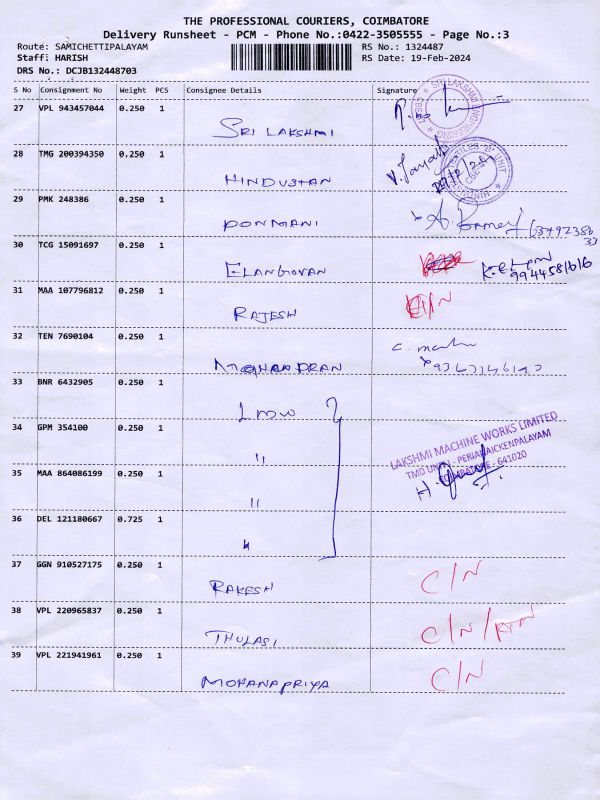 THE PROFESSIONAL COURIERS, COIMBATORE
Delivery Runsheet - PCM - Phone No.:0422-3505555 - Page No.:3
Route: SAMICHETTIPALAYAM RS No.: 1324487
Staff: HARISH RS Date: 19-Feb-2024
DRS No.: DCJB132448703
S No Consignment No Weight PCS Consignee Details Signature
27 VPL 943457044 0.250 1
SRI LAKSHMI
SRI LAKSHMI ENGINEERING
28 TMG 200394350 0.250 1
HINDUSTAN V. Jayan
29 PMK 248386 0.250 1
PONMANI
30 TCG 15091697 0.250 1
ELANGOVAN
9944581616
31 MAA 107796812 0.250 1 C/N
RAJESH
32 TEN 7690104 0.250 1
33 BNR 6432905 0.250 1
LMW
34 GPM 354100 0.250 1
LAKSHMI MACHINE WORKS LIMITED
TMD UNIT - PERIANAICKENPALAYAM
COIMBATORE - 641020
"
35 MAA 864086199 0.250 1
"
36 DEL 121180667 0.725 1
"
37 GGN 910527175 0.250 1
RAKESH C/N
38 VPL 220965837 0.250 1
THULASI C/N/
39 VPL 221941961 0.250 1
MOHANAPRIYA C/N